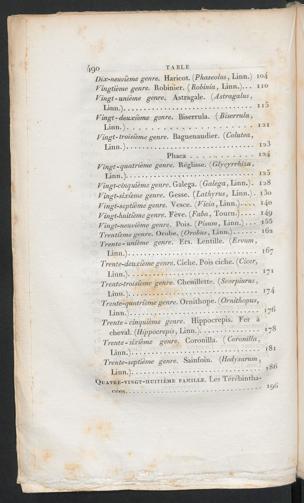 490 TABLE
Dix-neuvième genre. Haricot. (Phaseolus, Linn.) 104
Vingtième genre. Robinier. (Robinia, Linn.)... 110
Vingt-unième genre. Astragale. (Astragalus,
Linn.)........................ 115
Vingt-deuxième genre. Biserrula. (Biserrula,
Linn.)........................ 121
Vingt-troisième genre. Baguenaudier. (Colutea,
Linn.)........................ 123
Phaca............ 124
Vingt-quatrième genre. Réglisse. (Glycyrrhiza,
Linn.)........................ 125
Vingt-cinquième genre. Galega. (Galega, Linn.). 128
Vingt-sixième genre. Gesse. (Lathyrus, Linn.). 130
Vingt-septième genre. Vesce. (Vicia, Linn.).... 140
Vingt-huitième genre. Fève. (Faba, Tourn.).... 149
Vingt-neuvième genre. Pois. (Pisum, Linn.).... 155
Trentième genre. Orobe. (Orobus, Linn.)....... 162
Trente-unième genre. Ers. Lentille. (Ervum,
Linn.)........................ 167
Trente-deuxième genre. Ciche. Pois ciche. (Cicer,
Linn.)........................ 171
Trente-troisième genre. Chenillette. (Scorpiurus,
Linn.)........................ 174
Trente-quatrième genre. Ornithope. (Ornithopus,
Linn.)........................ 176
Trente-cinquième genre. Hippocrepis. Fer à
cheval. (Hippocrepis, Linn.)............ 178
Trente-sixième genre. Coronilla. (Coronilla,
Linn.)........................ 181
Trente-septième genre. Sainfoin. (Hedysarum,
Linn.)........................ 186
Quatre-vingt-huitième famille. Les Térébintha-
cées........................ 196